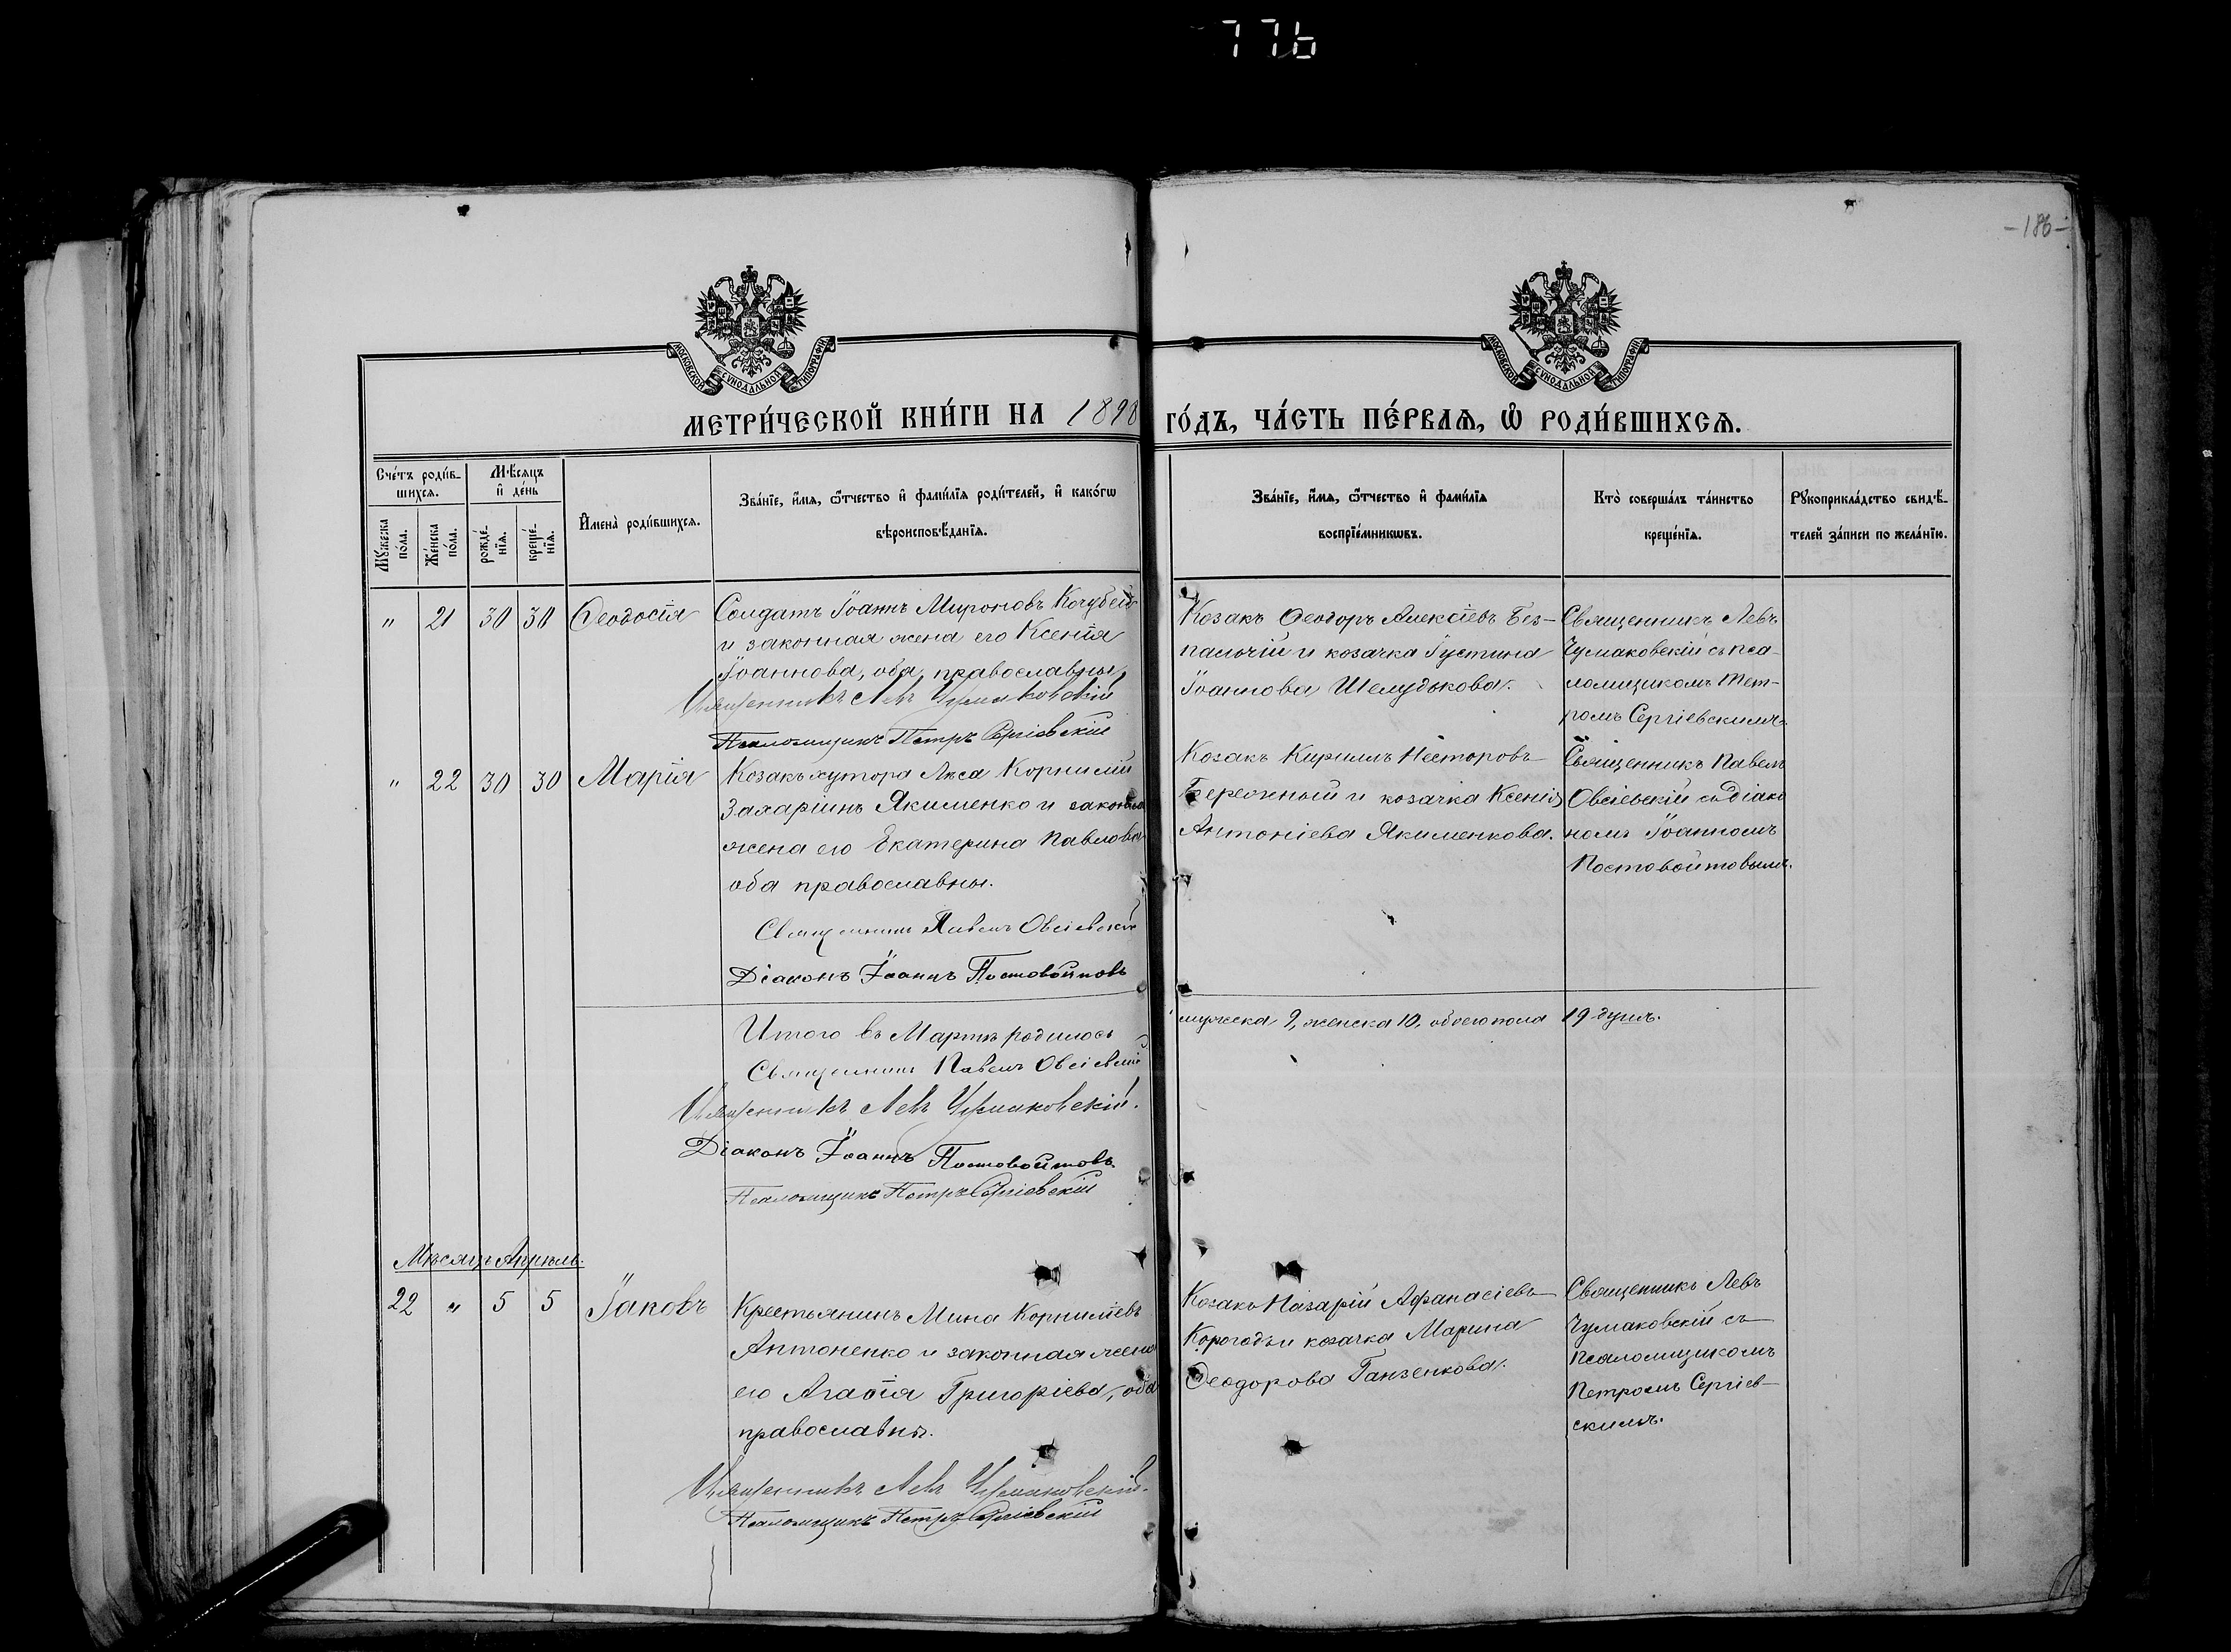 776
-186-
МОСКОВСКОЙ СѴНОДАЛЬНОЙ ТИПОГРАФІИ
МОСКОВСКОЙ СѴНОДАЛЬНОЙ ТИПОГРАФІИ
МЕТРИ́ЧЕСКОЙ КНИ́ГИ НА 1898 ГО́ДЪ, ЧА́СТЬ ПЕ́РВАѦ, Ѡ҆ РОДИ́ВШИХСѦ.
Сче́тъ роди́в-
шихсѧ.
Мꙋ́жеска
по́ла.
Же́нска
по́ла.
Мѣ́сѧцъ
и҆ де́нь
рожде́-
нїѧ.
креще́-
нїѧ.
И҆мена̀ роди́вшихсѧ.
Зва́нїе, и҆́мѧ, ѻ҆́тчество и҆ фами́лїѧ роди́телей, и҆ како́гѡ
вѣроисповѣ́данїѧ.
Зва́нїе, и҆́мѧ, ѻ҆́тчество и҆ фами́лїѧ
воспрїе́мникѡвъ.
Кто̀ соверша́лъ та́инство
креще́нїѧ.
Рꙋкоприкла́дство свидѣ́-
телей за́писи по жела́нїю.
" 21 30 30 Ѳеодосія
Солдатъ Іоаннъ Мироновъ Кочубей
и законная жена его Ксенія
Іоаннова, оба православны
Священникъ Левъ Чумаковскій
Псаломщикъ Петръ Сергіевскій
Козакъ Ѳеодоръ Алексіевъ Без-
палчій и козачка Іустина
Іоаннова Шелудькова.
Священникъ Левъ
Чумаковскій съ пса-
ломщикомъ Пет-
ромъ Сергіевскимъ.
" 22 30 30 Марія
Козакъ хутора Лиса Корнилій
Захаріинъ Якименко и законная
жена его Екатерина Павлова
оба православны.
Священникъ Павелъ Овсіевскій
Діаконъ Іоаннъ Постовойтовъ
Козакъ Кириллъ Несторовъ
Бережный и козачка Ксенія
Антоніева Якименкова.
Священникъ Павелъ
Овсіевскій съ діако
номъ Іоанномъ
Постовойтовымъ.
Итого въ Мартѣ родилось мужеска 9, женска 10, обоего пола 19 душъ.
Священникъ Павелъ Овсіевскій
Священникъ Левъ Чумаковскій.
Діаконъ Іоаннъ Постовойтовъ.
Псаломщикъ Петръ Сергіевскій
Мѣсяцъ Апрѣль.
22 " 5 5 Іаковъ
Крестьянинъ Мина Корниліевъ
Антоненко и законная жена
его Агафія Григоріева, оба
православны.
Священникъ Левъ Чумаковскій.
Псаломщикъ Петръ Сергіевскій
Козакъ Назарій Афанасіевъ
Корогодъ и козачка Марина
Ѳеодорова Ганзенкова.
Священникъ Левъ
Чумаковскій съ
Псаломщикомъ
Петромъ Сергіев-
скимъ.